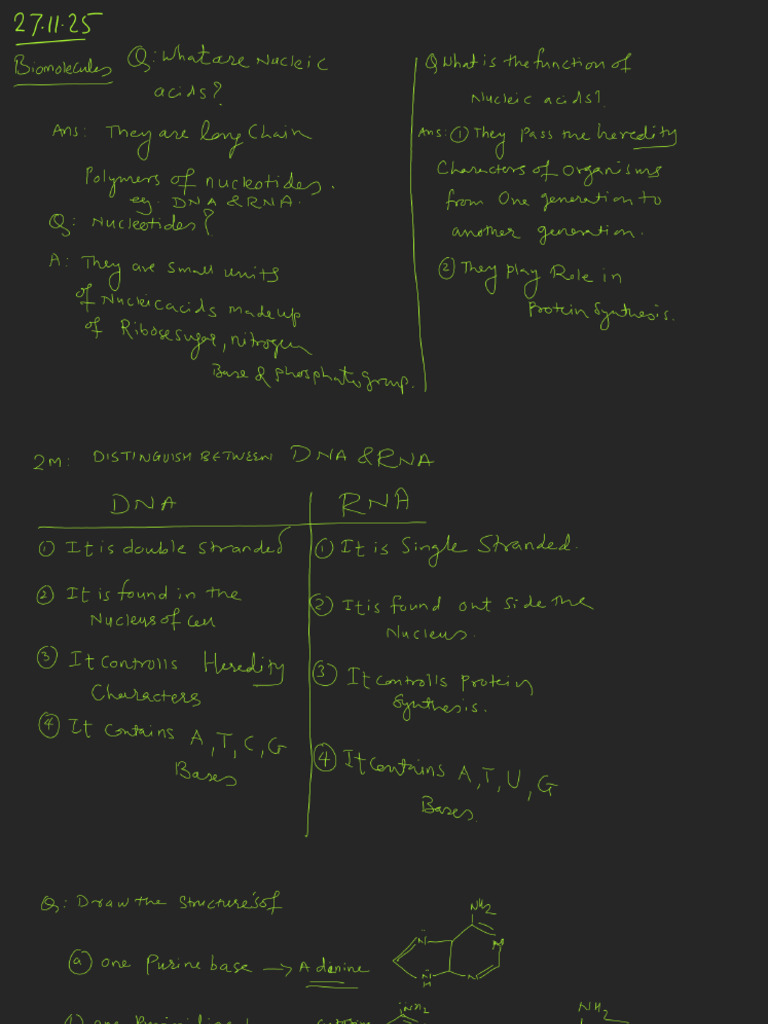 27.11.25
Biomolecules
Q: What are Nucleic
acids?
Ans: They are long Chain
Polymers of nucleotides.
eg. DNA & RNA.
Q: Nucleotides?
A: They are small units
of Nucleic acids made up
of Ribose sugar, nitrogen
Base & phosphate group.
Q What is the function of
Nucleic acids?
Ans: ① They pass the heredity
Characters of organisms
from One generation to
another generation.
② They play Role in
Protein Synthesis.
2M: DISTINGUISH BETWEEN DNA & RNA
DNA
① It is double stranded
② It is found in the
Nucleus of cell
③ It controlls Heredity
Characters
④ It contains A, T, C, G
Bases
RNA
① It is Single Stranded.
② It is found out side the
Nucleus.
③ It controlls protein
Synthesis.
④ It contains A, T, U, G
Bases.
Q: Draw the structure's of
ⓐ one Purine base → Adenine
NH2
N
N
N
N
H
NH2
NH2